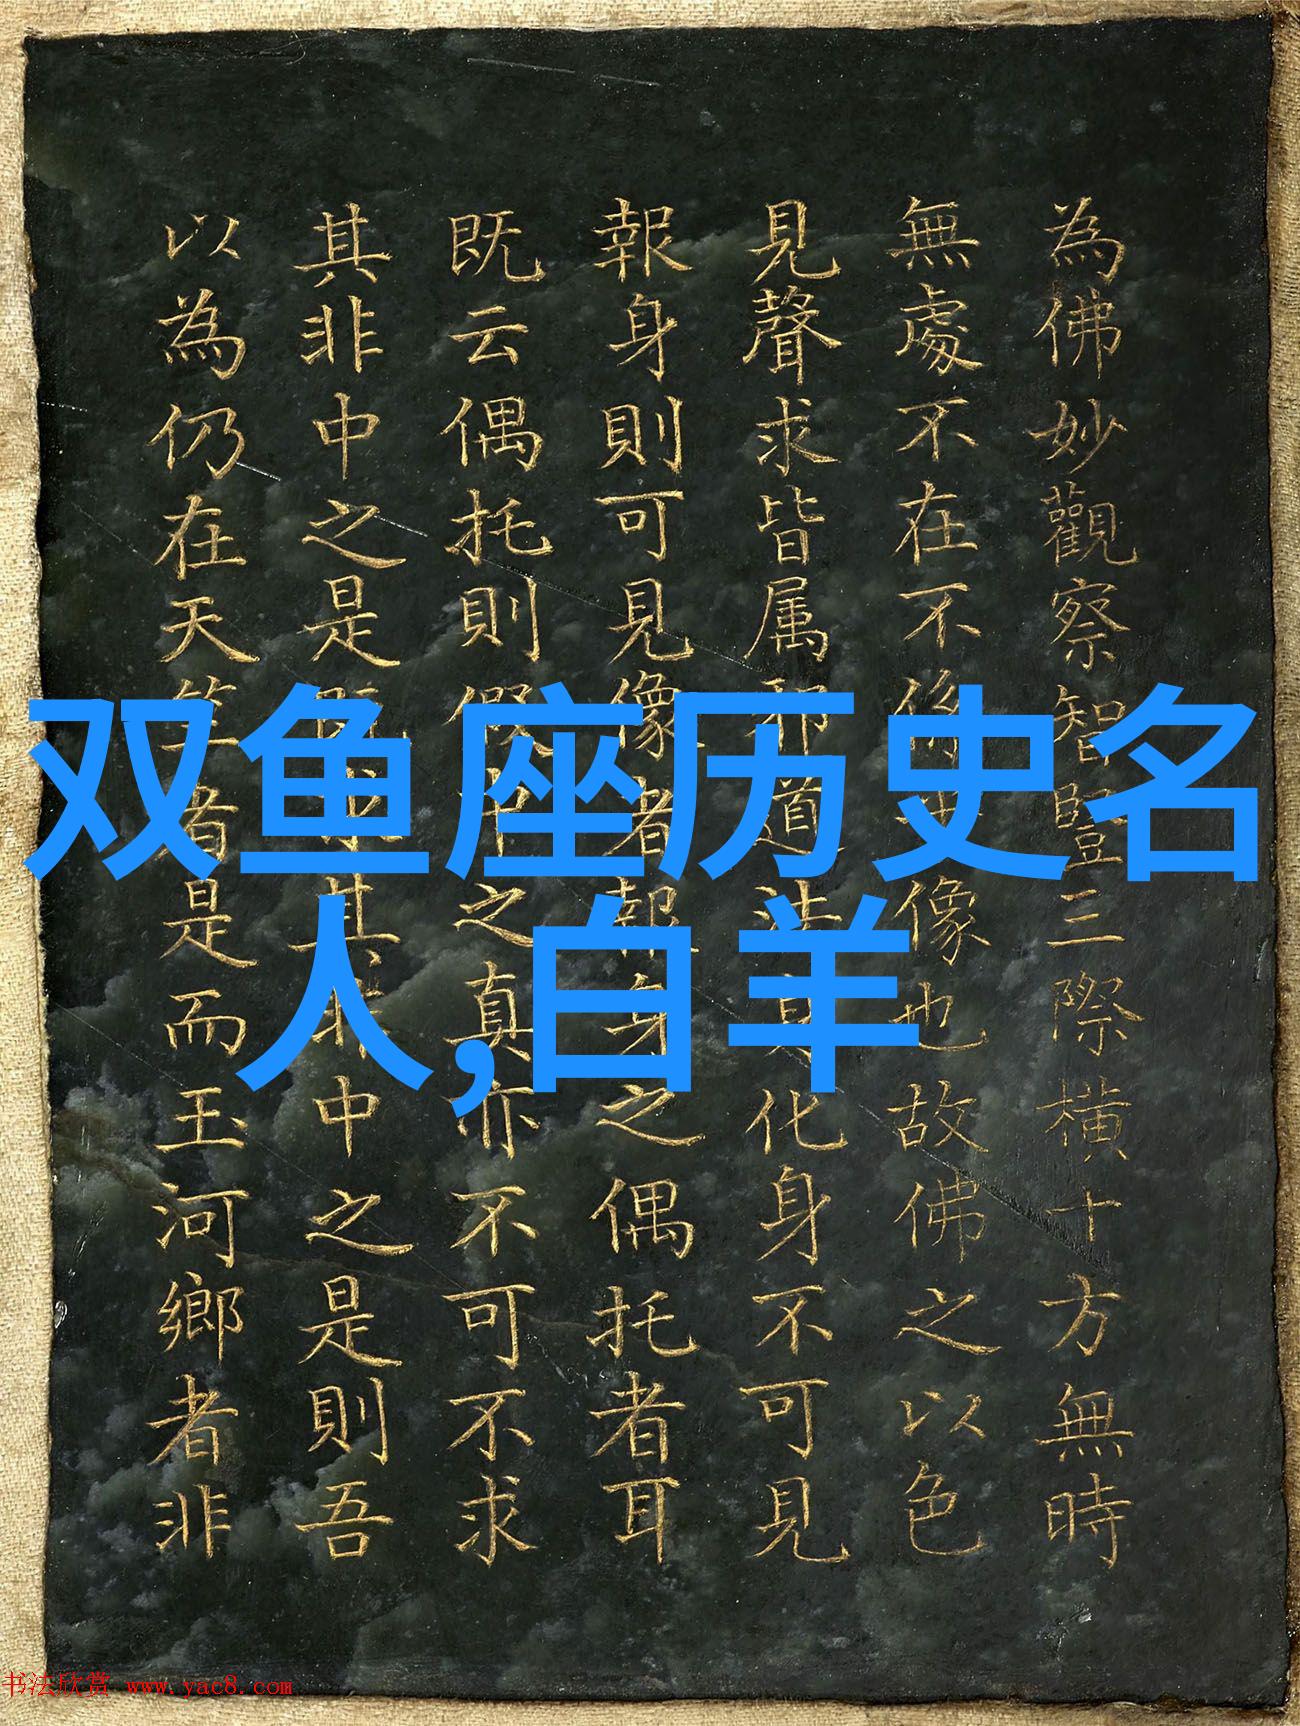 為佛妙觀察智豎三際橫十方無時
無處不在不像也故佛之以色
見聲求皆属邪道法身化身不可見
報身則可見像者報身之偶托者耳
既云偶托則假中之真亦不可不求
其非中之是既求其非中之是則吾
以為仍在天竺者是而玉河鄉者非
双鱼座历史名
人,白羊
书法欣赏 www.yac8.com